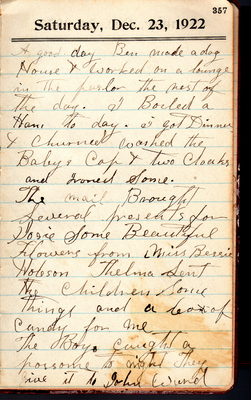 357
Saturday, Dec. 23, 1922
A good day Ben made a dog
House & worked on a lounge
in the parlor the rest of
the day. I Boiled a
Ham to day. I got Dinner
& Churned washed the
Babys Cap & two Cloaks
and Ironed Some.
The mail Brought
Several presents for
Josie Some Beautiful
Flowers from Miss Bessie
Hobson Thelma Sent
the Children Some
things and a box of
Candy for me
The Boys caught a
possome to night They
give it to John